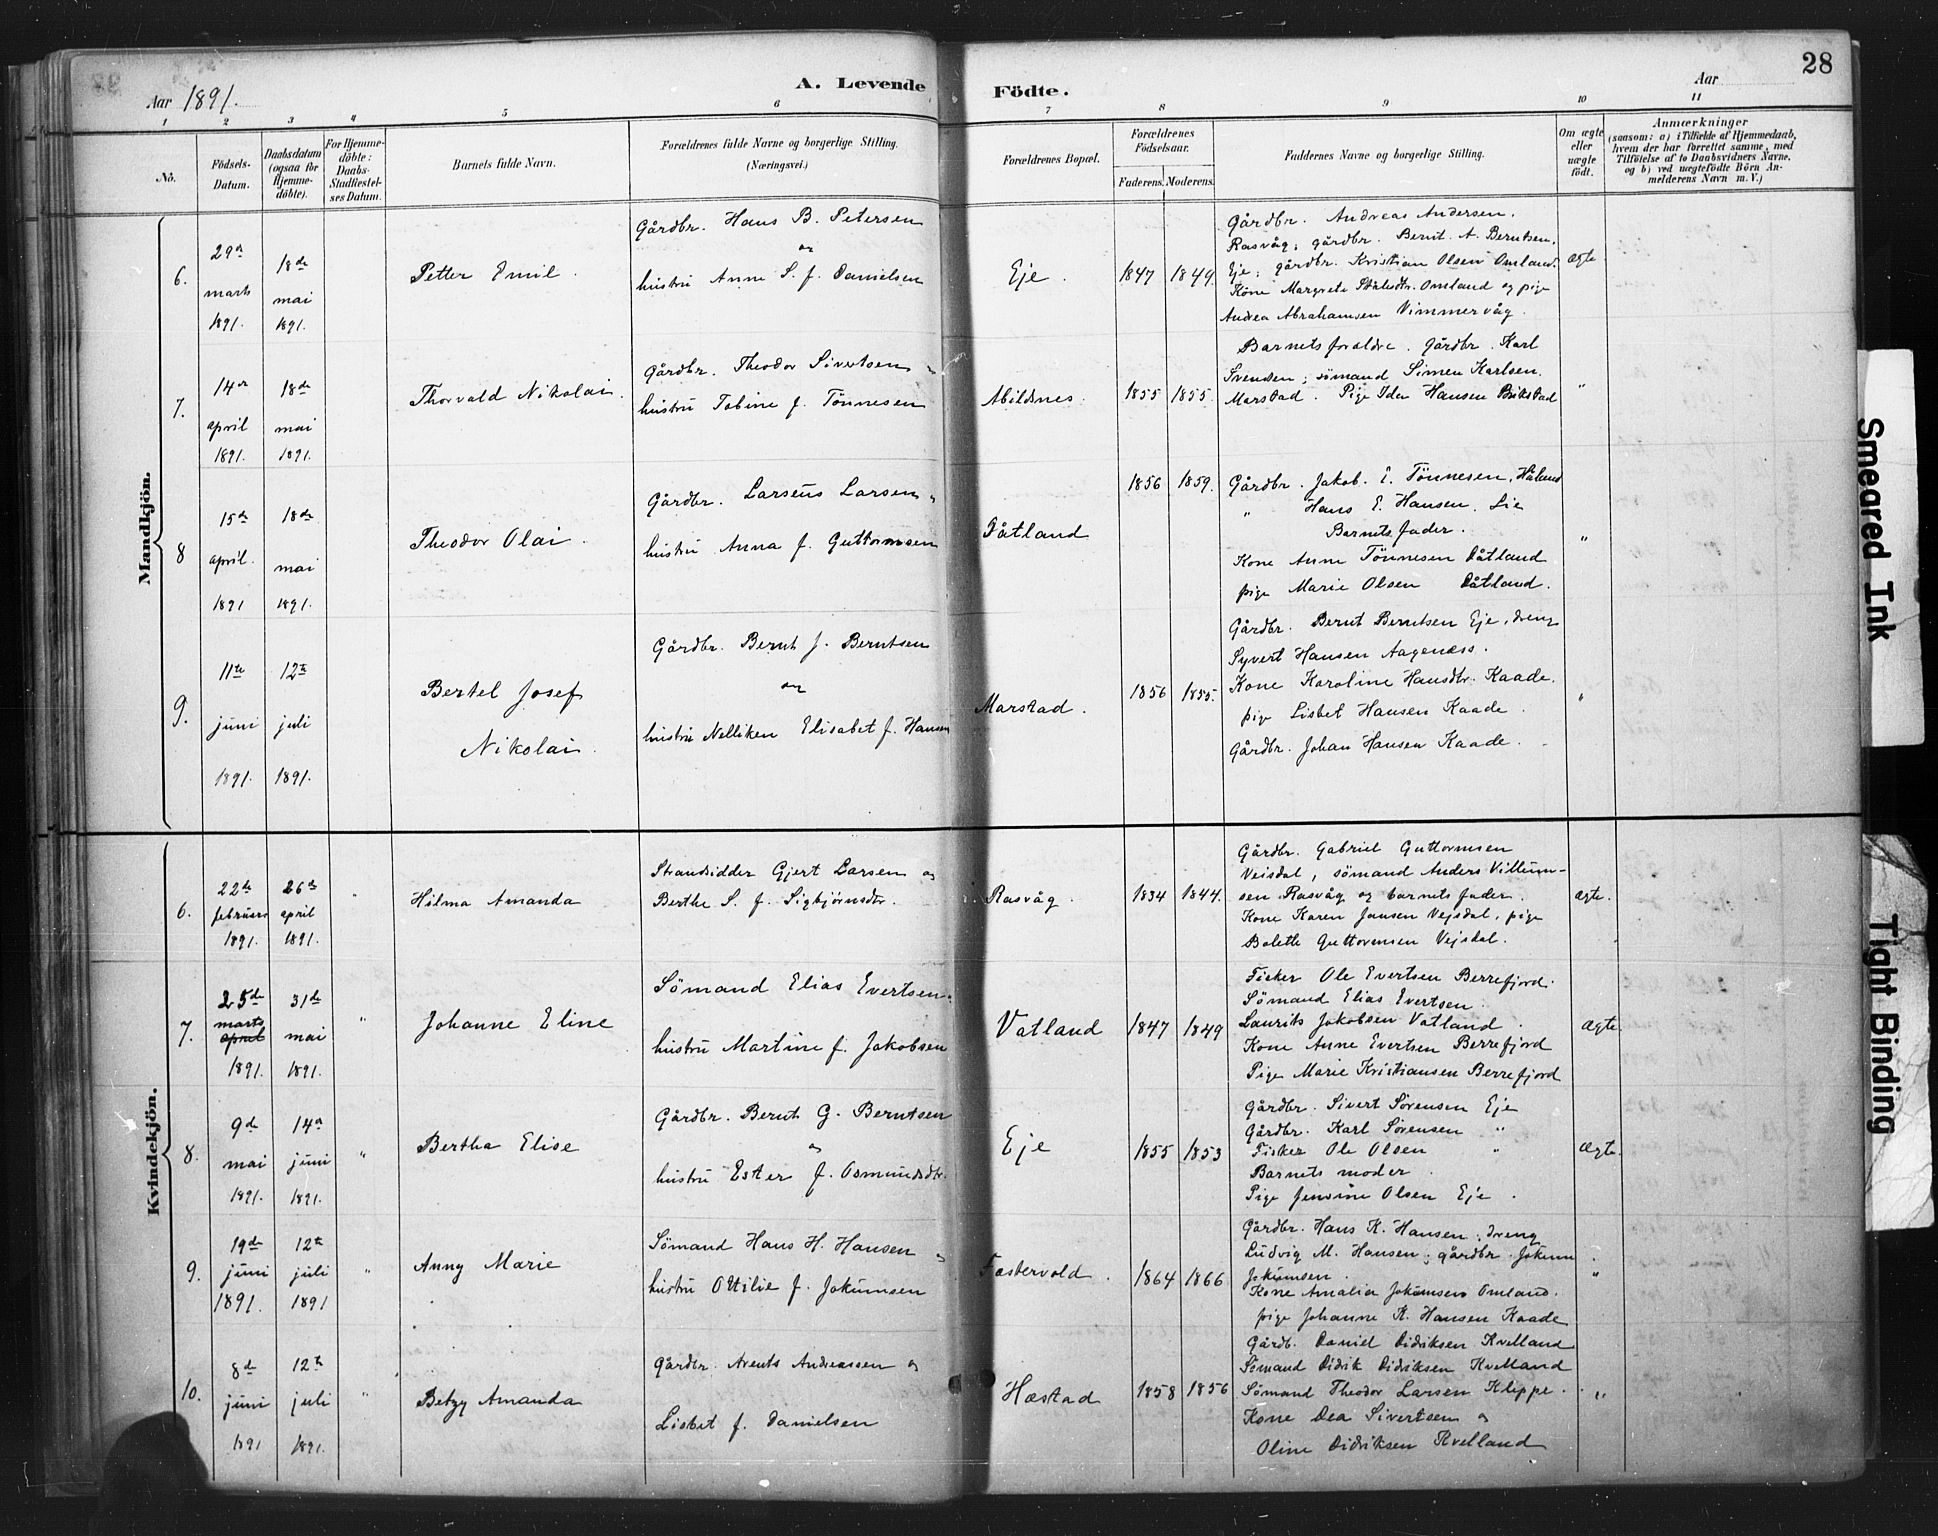 28
Aar 1891.
A. Levende Födte.
Aar
1 2 3 4 5 6 7 8 9 10 11
No.
Födsels-Datum.
Daabsdatum (ogsaa for Hjemme-döbte).
For Hjemme-döbte: Daabs-Stadfæstel-ses Datum.
Barnets fulde Navn.
Forældrenes fulde Navne og borgerlige Stilling. (Næringsvei.)
Forældrenes Bopæl.
Forældrenes Födselsaar.
Faderens. Moderens.
Faddernes Navne og borgerlige Stilling.
Om ægte eller uægte födt.
Anmærkninger
(saasom: a) i Tilfælde af Hjemmedaab, hvem der har forrettet samme, med Tilföielse af to Daabsvidners Navne, og b) ved uægtefödte Börn An-melderens Navn m. V.)
Mandkjön.
6.
29de marts 1891.
18de mai 1891.
Petter Emil.
Gårdbr. Hans B. Petersen
og
hustru Anne S. f. Danielsen
Eje.
1847 1849.
Gårdbr. Andreas Andersen.
Rasvåg; gårdbr. Bernt A. Berntsen,
Eje; gårdbr. Kristian Olsen Omland.
Kone Margrete Omland og pige
Andrea Abrahamsen Vimmervåg.
ægte
7.
14de april 1891.
18de mai 1891.
Thorvald Nikolai.
Gårdbr. Theodor Sivertsen og
hustru Tobine f. Tönnesen
Abildsnes.
1855 1855.
Barnets forældre. Gårdbr. Karl
Svendsen; sömand Simen Karlsen.
Marstad. Pige Ida Hansen Brikstad
"
8
15de april. 1891
18de mai 1891.
Theodor Olai.
Gårdbr. Larseus Larsen og
hustru Anna f. Guttormsen
Dåtland
1856 1859.
Gårdbr. Jakob. E. Tönnesen, Håland
" Hans E. Hansen. Lie
Barnets fader.
Kone Anne Tönnesen Dåtland
pige Marie Olsen Dåtland.
"
9.
11te juni 1891.
12te juli 1891.
Bertel Josef
Nikolai.
Gårdbr. Bernt J. Berntsen
og
hustru Nelliken Elisabet f. Hansen
Marstad.
1856 1855.
Gårdbr. Bernt Berntsen Eje, dreng
Syvert Hansen Aagenæss.
Kone Karoline Hansdtr. Kaade.
pige Lisbet Hansen Kaade.
Gårdbr. Johan Hansen Kaade.
"
Kvindekjön.
6.
22de februar 1891.
26de april 1891.
"
Hilma Amanda
Strandsidder Gjert Larsen og
Berthe S. f. Sigbjörnsdtr.
Rasvåg.
1834 1844.
Gårdbr. Gabriel Guttormsen
Veisdal, sömand Anders Villum-
sen Rasvåg og barnets fader.
Kone Karen Jansen Vejsdal, pige
Bolette Guttormsen Vejsdal.
ægte.
7.
25de marts april 1891.
31de mai 1891.
"
Johanne Eline
Sömand Elias Evertsen.
hustru Martine f. Jakobsen
Vatland
1847 1849
Fisker Ole Evertsen Berrefjord.
Sömand Elias Evertsen
Laurits Jakobsen Vatland.
Kone Anne Evertsen Berrefjord
Pige Marie Kristiansen Berrefjord
ægte
8.
9de mai 1891.
14de juni 1891.
"
Bertha Elise
Gårdbr. Bernt G. Berntsen
og
hustru Ester f. Osmundsdtr.
Eje
1855 1853
Gårdbr. Sivert Sörensen Eje
Gårdbr. Karl Sörensen "
Fisker Ole Olsen "
Barnets moder.
Pige Jensine Olsen Eje.
ægte.
9.
19de juni 1891.
12te juli 1891
"
Anny Marie
Sömand Hans H. Hansen og
hustru Ottilie f. Jokumsen
Fastervold.
1864 1866
Gårdbr. Hans K. Hansen, dreng
Ludvig M. Hansen; gårdbr. Jokum
Jokumsen.
Kone Amalia Jokumsen Omland.
pige Johanne K. Hansen Kaade
"
10.
8de juni 1891
12te juli 1891.
"
Betzy Amanda
Gårdbr. Arents Andreassen og
Lisbet f. Danielsen
Hæstad
1858 1856
Gårdb. Daniel Didriksen Kvelland
Sömand Didrik Didriksen Kvelland
Sömand Theodor Larsen Kleppe.
Kone Dea Sivertsen og
Oline Didriksen Kvelland
"
Smeared Ink
Tight Binding